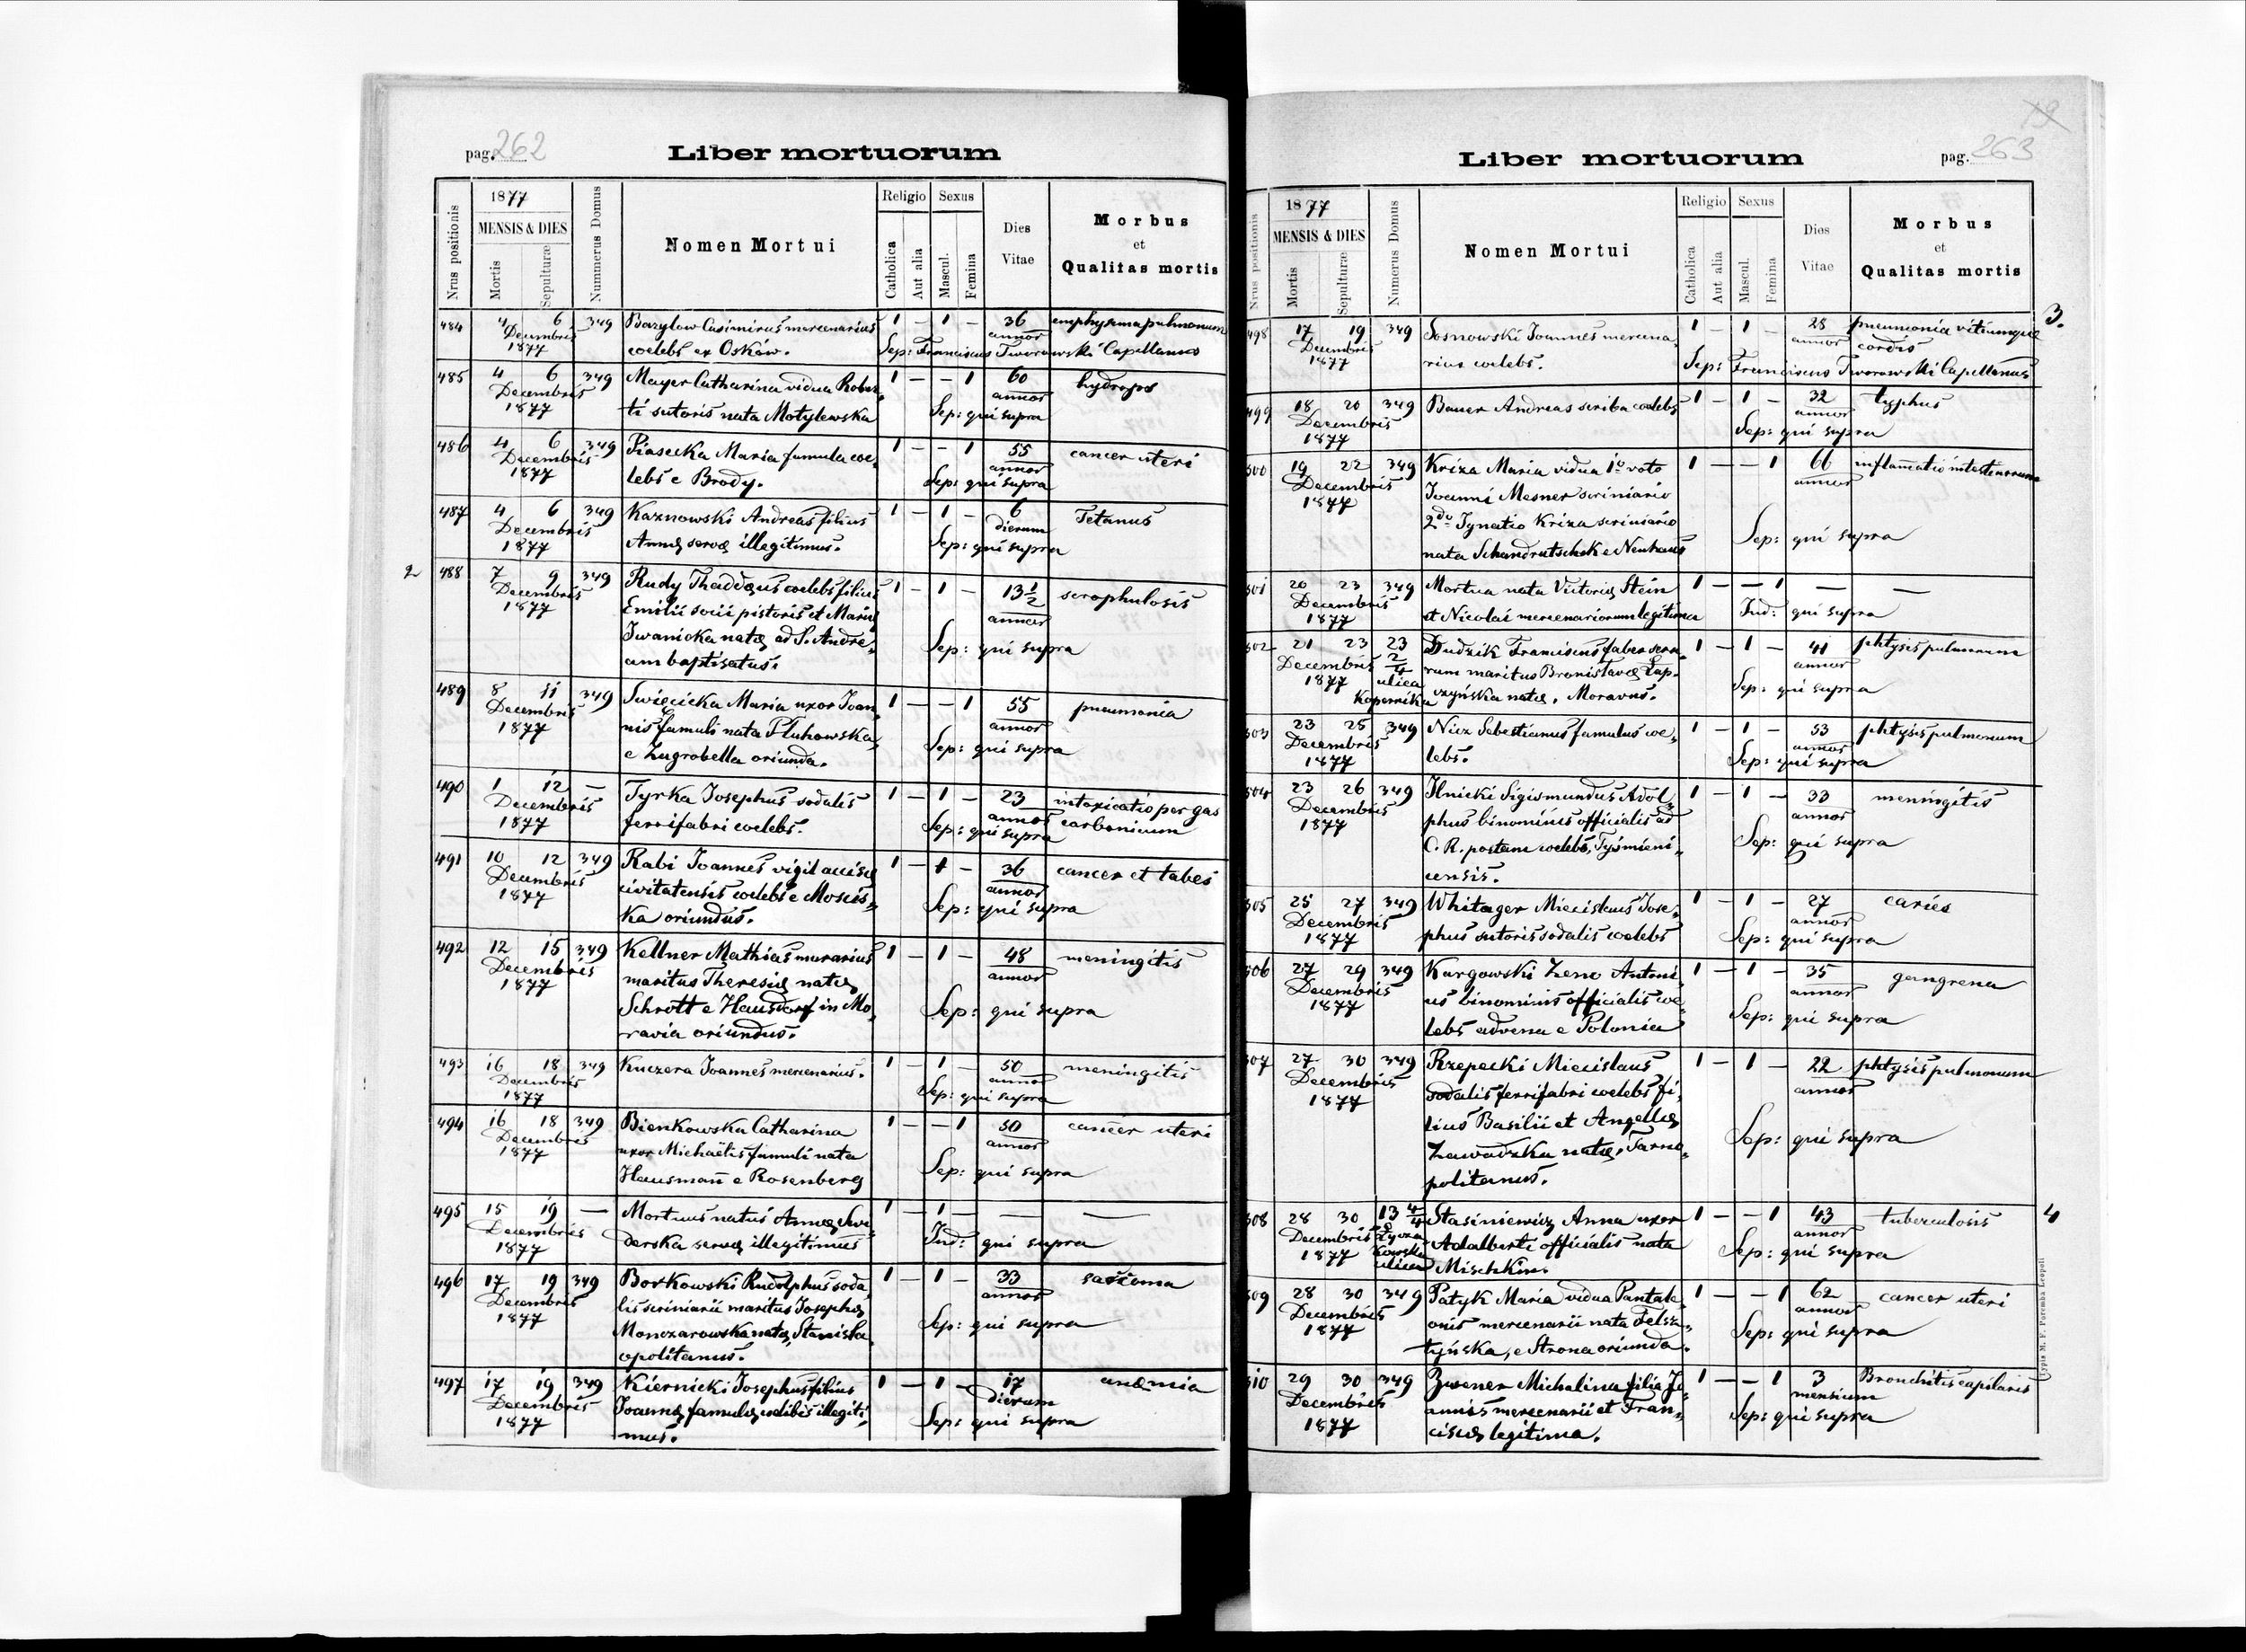 pag. 262
Liber mortuorum
Nrus positionis
1877
MENSIS & DIES
Mortis
Sepulturæ
Nummerus Domus
Nomen Mortui
Religio
Catholica
Aut alia
Sexus
Mascul.
Femina
Dies
Vitae
Morbus
et
Qualitas mortis
484 4 6 349 Bazylow Casimirus mercenarius 1 – 1 – 36 emphysema pulmonum
Decembris annor
1877 coelebs ex Osków. Sep: Franciscus Tworowski Capellanus
485 4 6 349 Mayer Catharina vidua Rober„ 1 – – 1 60 hydrops
Decembris annor
1877 ti sutoris nata Motylewska Sep: qui supra
486 4 6 349 Piasecka Maria famula coe„ 1 – – 1 55 cancer uteri
Decembris annor
1877 lebs e Brody. Sep: qui supra
487 4 6 349 Kaznowski Andreas filius 1 – 1 – 6 Tetanus
Decembris dierum
1877 Annæ servæ illegitimus. Sep: qui supra
2 488 7 9 349 Rudy Thaddæus coelebs filius 1 – 1 – 13 1/2 scrophulosis
Decembris Emilii socii pistoris et Mariæ annor
1877 Iwanicka natæ ad S. Andre„
am baptisatus. Sep: qui supra
489 8 11 349 Swięcicka Maria uxor Joan„ 1 – – 1 55 pneumonia
Decembris nis famuli nata Pluhowska, annor
1877 e Zugrobella oriunda. Sep: qui supra
490 1 12 – Tyrka Josephus sodalis 1 – 1 – 23 intoxicatio per gas
Decembris annor carbonicum
1877 ferrifabri coelebs. Sep: qui supra
491 10 12 349 Rabi Joannes vigil accisæ 1 – 1 – 36 cancer et tabes
Decembris civitatensis coelebs e Mościs„ annor
1877 ka oriundus. Sep: qui supra
492 12 15 349 Kellner Mathias murarius 1 – 1 – 48 meningitis
Decembris maritus Theresiæ natæ annor
1877 Schrott e Hausdorf in Mo„ Sep: qui supra
ravia oriundus.
493 16 18 349 Kuczera Joannes mercenarius. 1 – 1 – 50 meningitis
Decembris annor
1877 Sep: qui supra
494 16 18 349 Bienkowska Catharina 1 – – 1 50 cancer uteri
Decembris uxor Michaëlis famuli nata annor
1877 Hausmañ e Rosenberg Sep: qui supra
495 15 19 — Mortuus natus Annæ Swi„ 1 – 1 — — —
Decembris
1877 derska servæ illegitimus Ind: qui supra
496 17 19 349 Borkowski Rudolphus soda„ 1 – 1 – 33 sarcoma
Decembris lis scriniarii maritus Josephæ annor
1877 Monczarowska natæ, Stanisla„ Sep: qui supra
opolitanus.
497 17 19 349 Kiernicki Josephus filius 1 – 1 – 17 anæmia
Decembris Joannæ famulæ coelibis illegiti„ dierum
1877 mus. Sep: qui supra
19
pag. 263
Liber mortuorum
Nrus positionis
1877
MENSIS & DIES
Mortis
Sepulturæ
Numerus Domus
Nomen Mortui
Religio
Catholica
Aut alia
Sexus
Mascul.
Femina
Dies
Vitae
Morbus
et
Qualitas mortis
498 17 19 349 Sosnowski Joannes mercena„ 1 – 1 – 28 pneumonia vitiumque 3.
Decembris annor cordis
1877 rius coelebs. Sep: Franciscus Tworowski Capellanus
499 18 20 349 Bauer Andreas scriba coelebs 1 – 1 – 32 typhus
Decembris annor
1877 Sep: qui supra
500 19 22 349 Kriza Maria vidua 1o voto 1 – – 1 66 inflamatio intestinorum
Decembris Joanni Mesner scriniario annor
1877 2do Ignatio Kriza scriniario
nata Schandrutschek e Neuhaus Sep: qui supra
501 20 23 349 Mortua nata Victoriæ Stein 1 – – 1 — —
Decembris
1877 et Nicolai mercenariorum legitima Ind: qui supra
502 21 23 23 2/4 Dudzik Franciscus faber sera„ 1 – 1 – 41 phtysis pulmonum
Decembris ulica rum maritus Bronislavæ Łap„ annor
1877 Kopernika czyńska natæ, Moravus. Sep: qui supra
503 23 25 349 Nicz Sebestianus famulus coe„ 1 – 1 – 53 phtysis pulmonum
Decembris annor
1877 lebs. Sep: qui supra
504 23 26 349 Ilnicki Sigismundus Adol„ 1 – 1 – 33 meningitis
Decembris phus binominis officialis ad annor
1877 C. R. postam coelebs, Tyśmieni„ Sep: qui supra
censis.
505 25 27 349 Whitager Miecislaus Jose„ 1 – 1 – 27 caries
Decembris annor
1877 phus sutoris sodalis coelebs Sep: qui supra
506 27 29 349 Kargowski Zeno Antoni„ 1 – 1 – 35 gangrena
Decembris us binominis officialis coe„ annor
1877 lebs advena e Polonia Sep: qui supra
507 27 30 349 Rzepecki Miecislaus 1 – 1 – 22 phtysis pulmonum
Decembris sodalis ferrifabri coelebs fi„ annor
1877 lius Basilii et Angellæ
Zawadzka natæ, Tarno„ Sep: qui supra
politanus.
508 28 30 13 4/4 Stasiniewicz Anna uxor 1 – – 1 43 tuberculosis 4
Decembris Łycza Adalberti officialis nata annor
1877 kowska ulica Mischkin. Sep: qui supra
509 28 30 349 Patyk Maria vidua Pantale„ 1 – – 1 62 cancer uteri
Decembris onis mercenarii nata Felsz„ annor
1877 tyńska, e Strona oriunda. Sep: qui supra
510 29 30 349 Zwener Michalina filia Jo„ 1 – – 1 3 Bronchitis capilaris
Decembris annis mercenarii et Fran„ mensium
1877 ciscæ legitima. Sep: qui supra
Typis M. F. Poremba Leopoli